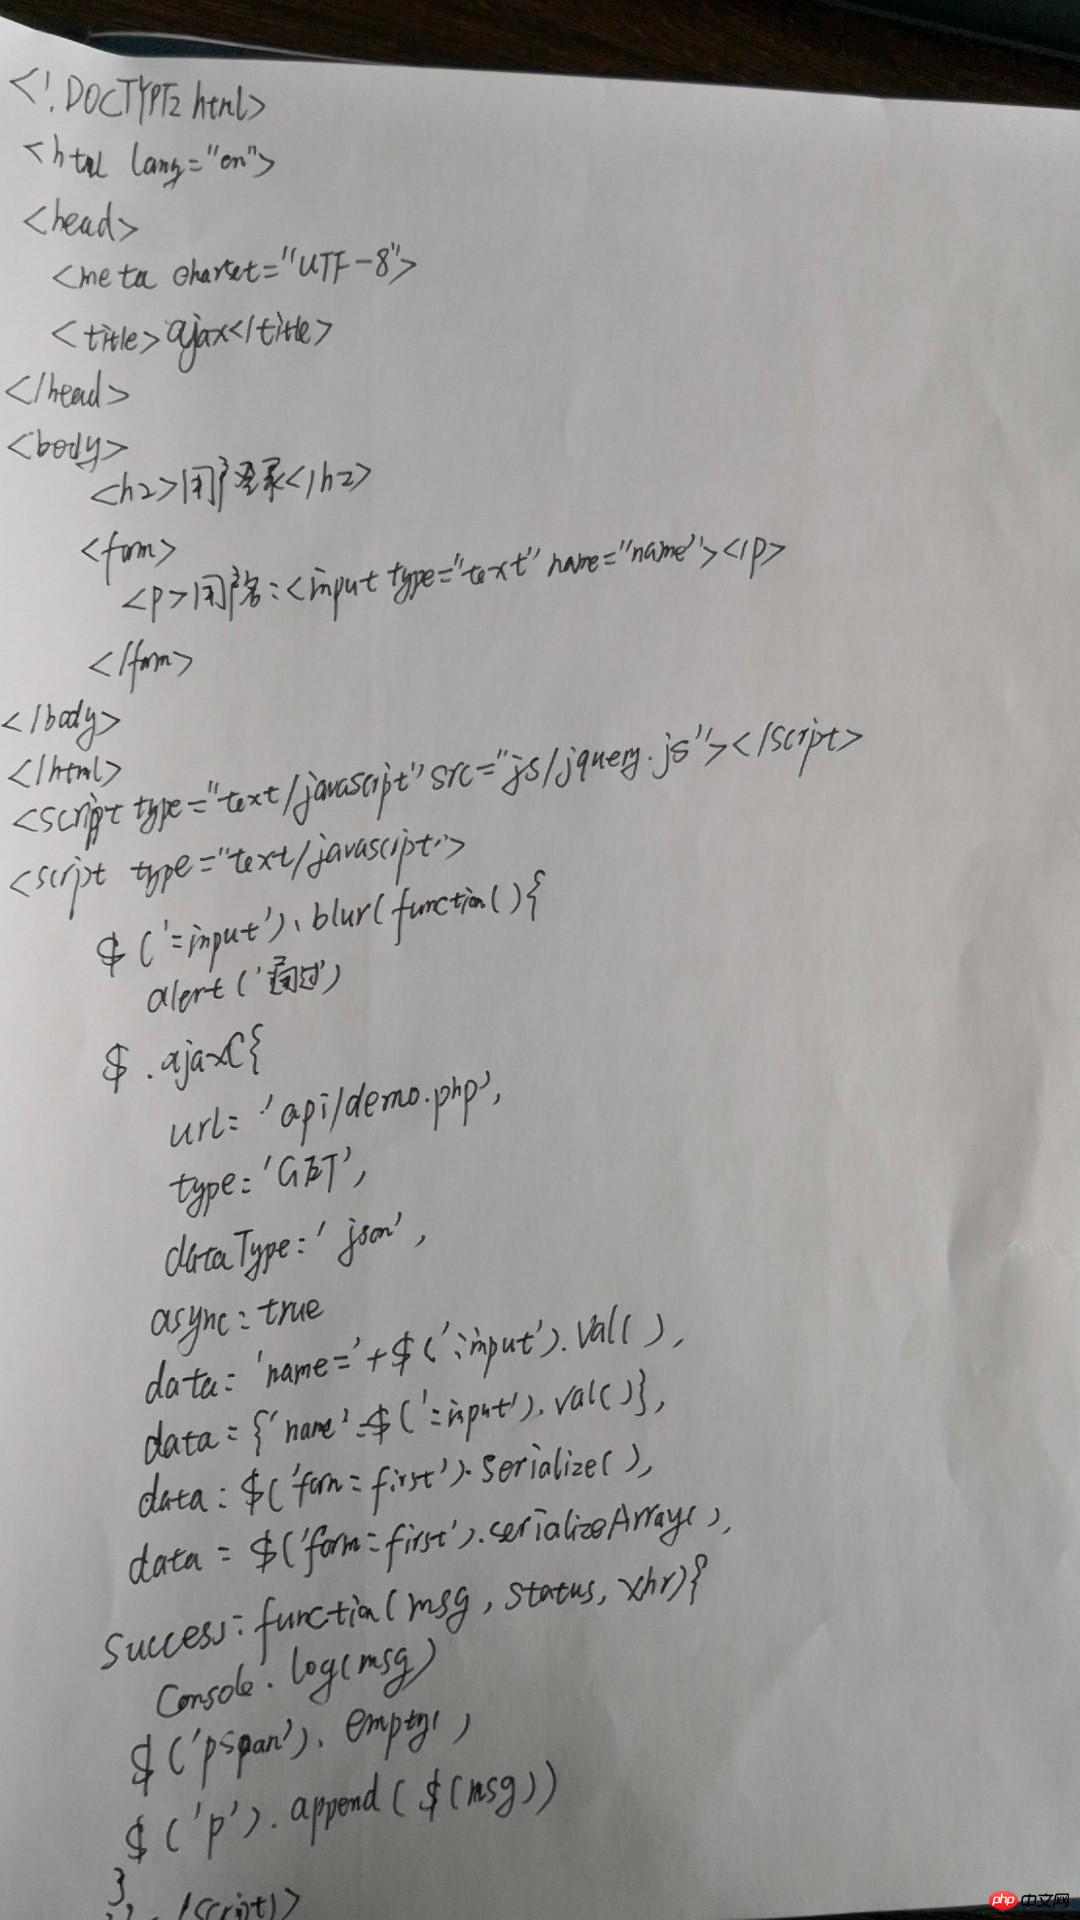 <!DOCTYPE html>
<html lang="en">
<head>
<meta charset="UTF-8">
<title>ajax</title>
</head>
<body>
<h2>用户登录</h2>
<form>
<p>用户名:<input type="text" name="name"></p>
</form>
</body>
</html>
<script type="text/javascript" src="js/jquery.js"></script>
<script type="text/javascript">
$(':input').blur(function(){
alert('通过')
$.ajax({
url: 'api/demo.php',
type: 'GET',
dataType: 'json',
async: true
data: 'name='+$(':input').val(),
data: {'name':$(':input').val()},
data: $('form:first').serialize(),
data: $('form:first').serializeArray(),
success: function(msg, status, xhr){
console.log(msg)
$('pspan').empty()
$('p').append($(msg))
}
/script)>
php 中文网